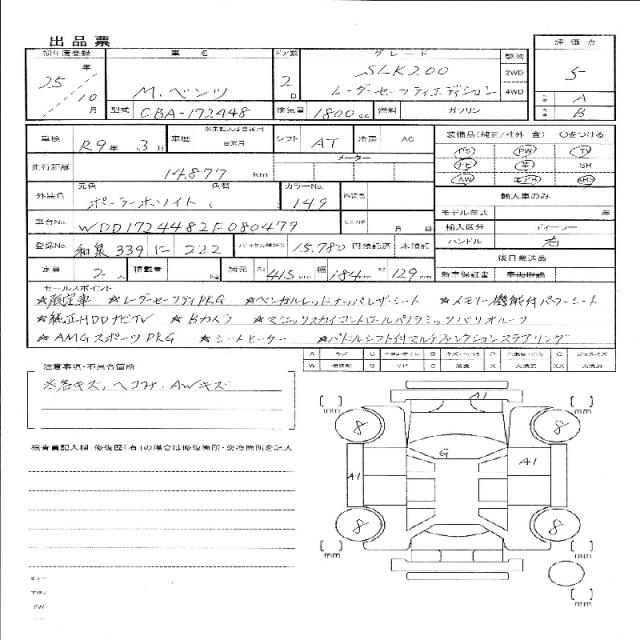 出品票
初年度登録 車名 ドア数 グレード 評価点
25年 10月 M.ベンツ 2 SLK200 5
レーダーセーフティエディション 2WD 4WD A
型式 CBA-172448 排気量 1800cc 燃料 ガソリン B
車検 R9年3月 車歴 シフト AT 冷房 AC 装備品(純正/社外 含) ○をつける
走行距離 14,877 km メーター PW SR AW
外装色 元色 色替 ポーラーホワイト カラーNo. 149 内装色 輸入車のみ
モデル年式 年
車台No. WDD1724482F080479 月 日 輸入区分 ディーラー
ハンドル 右
登録No. 和泉 339 に 222 リサイクル預託金 15,780 円預託済 未預託 後日発送品
定員 2人 積載量 Kg 諸元 長さ 415cm 幅 184cm 高さ 129cm 新車保証書
セールスポイント
★限定車 ★レーダーセーフティPKG ★ベンガルレッドナッパレザーシート ★メモリー機能付パワーシート
★純正HDDナビTV ★Bカメラ ★マジックスカイコントロールパノラミックバリオルーフ
★AMGスポーツPKG ★シートヒーター ★パドルシフト付マルチファンクションステアリング
注意事項・不具合箇所
各キズ、ヘコミ、AWキズ
検査員記入欄 修復歴「有」の場合は修復箇所・交換箇所を記入
A1
8 8
G
A1 A1
8 8
mm mm
mm mm
mm